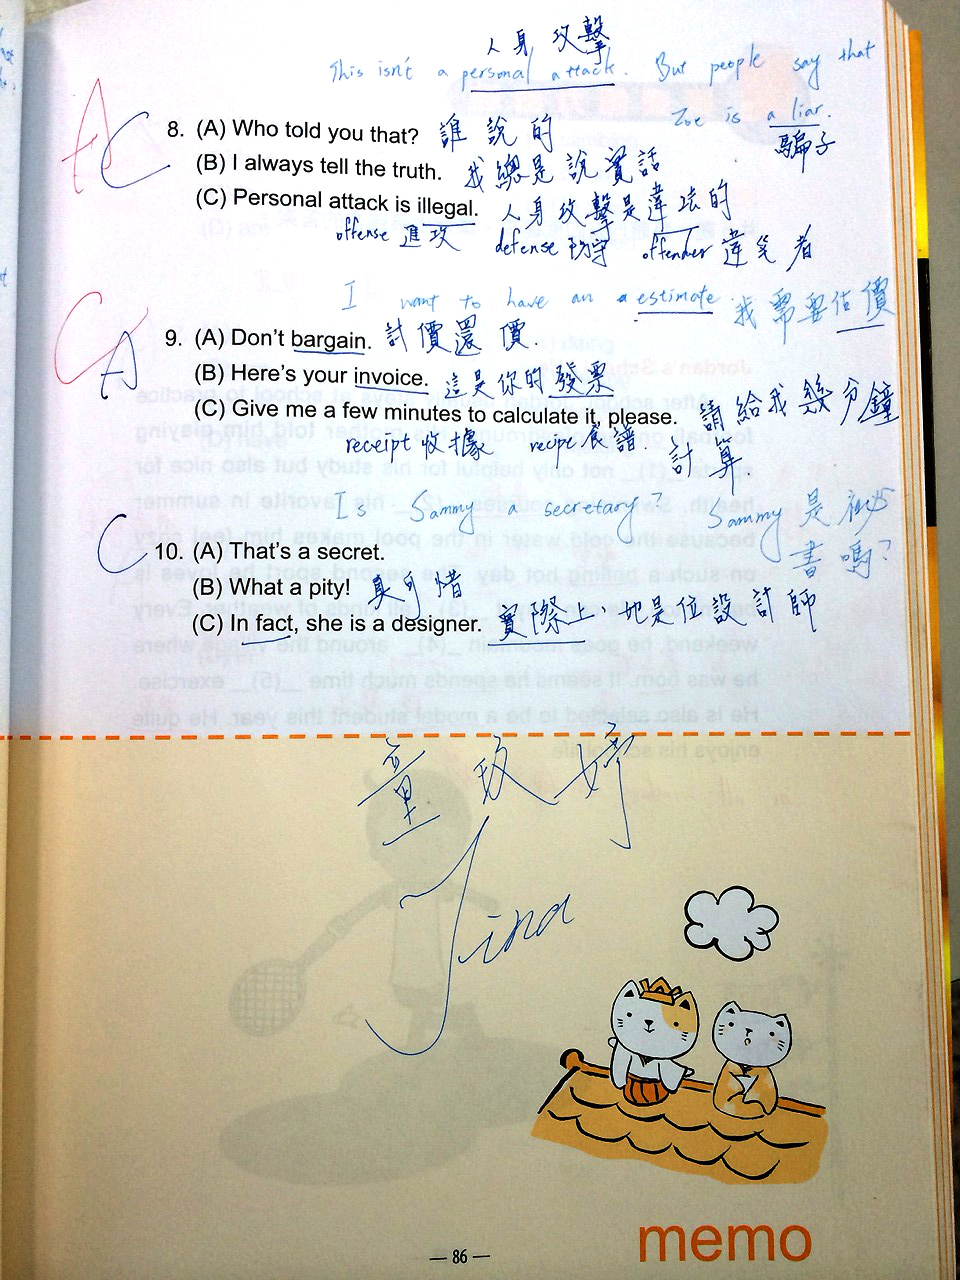 人身攻擊
This isn't a personal attack. But people say that
Zoe is a liar.
騙子
A C 8. (A) Who told you that? 誰說的
(B) I always tell the truth. 我總是說實話
(C) Personal attack is illegal. 人身攻擊是違法的
offense 進攻 defense 防守 offender 違
I want to have an a estimate. 我需要估價
C A 9. (A) Don't bargain. 討價還價
(B) Here's your invoice. 這是你的發票
(C) Give me a few minutes to calculate it, please. 請給我幾分鐘
receipt 收據 recipe 食譜 計算
Is Sammy a secretary? Sammy 是祕
書嗎?
C 10. (A) That's a secret.
(B) What a pity! 真可惜
(C) In fact, she is a designer. 實際上、她是位設計師
童玫婷
Tina
memo
— 86 —